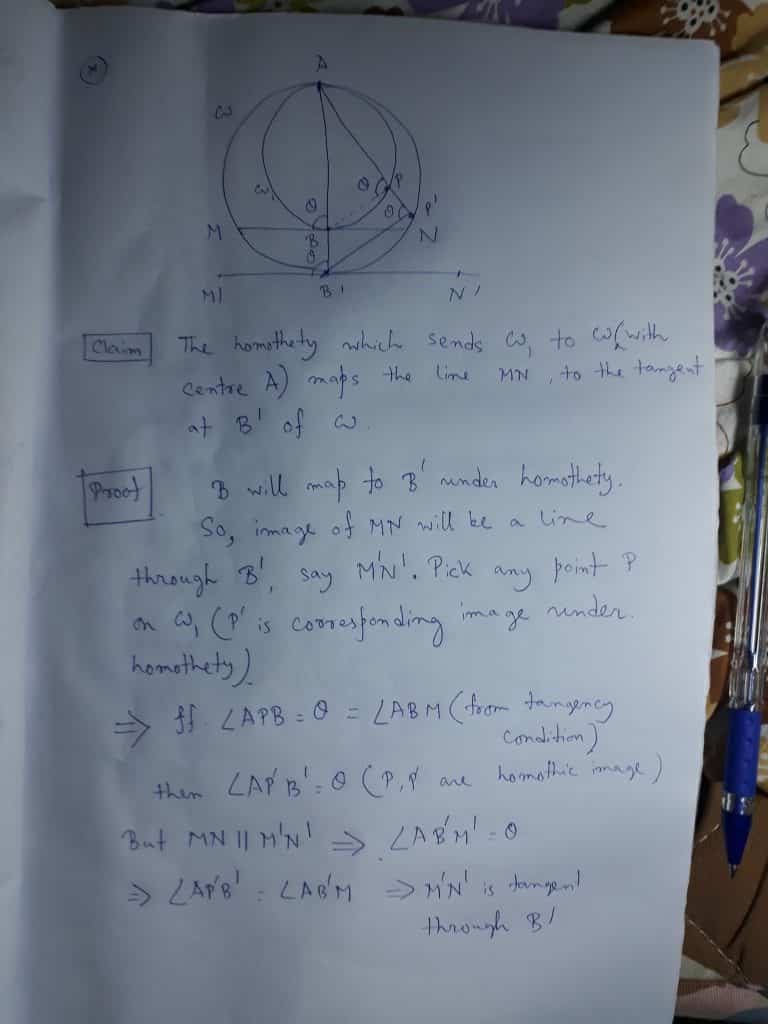 *
A
ω
ω₁
θ
P
θ
θ
P'
M
B
N
θ
M'
B'
N'
Claim The homothety which sends ω₁ to ω (with
centre A) maps the line MN, to the tangent
at B' of ω.
Proof B will map to B' under homothety.
So, image of MN will be a line
through B', say M'N'. Pick any point P
on ω₁ (P' is corresponding image under
homothety).
⇒ If ∠APB = θ = ∠ABM (from tangency
condition)
then ∠AP'B' = θ (P,P' are homothic image)
But MN || M'N' ⇒ ∠AB'M' = θ
⇒ ∠AP'B' = ∠AB'M ⇒ M'N' is tangent
through B'